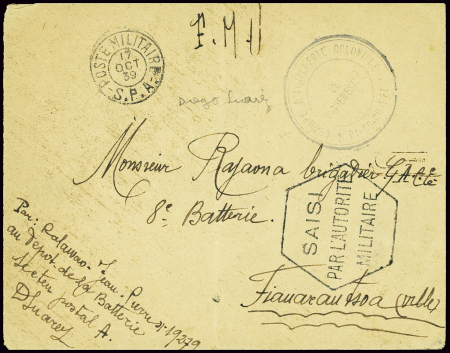 F.M
POSTE MILITAIRE
17
OCT
39
S.P.A
Diego Suarez
Monsieur Rajaona brigadier
8e Batterie.
SAISI
PAR L'AUTORITÉ
MILITAIRE
Fianarantsoa (ville)
Par: Jean-Pierre No 19379
au Dépôt de la Batterie
Secteur postal A.
D Suarez